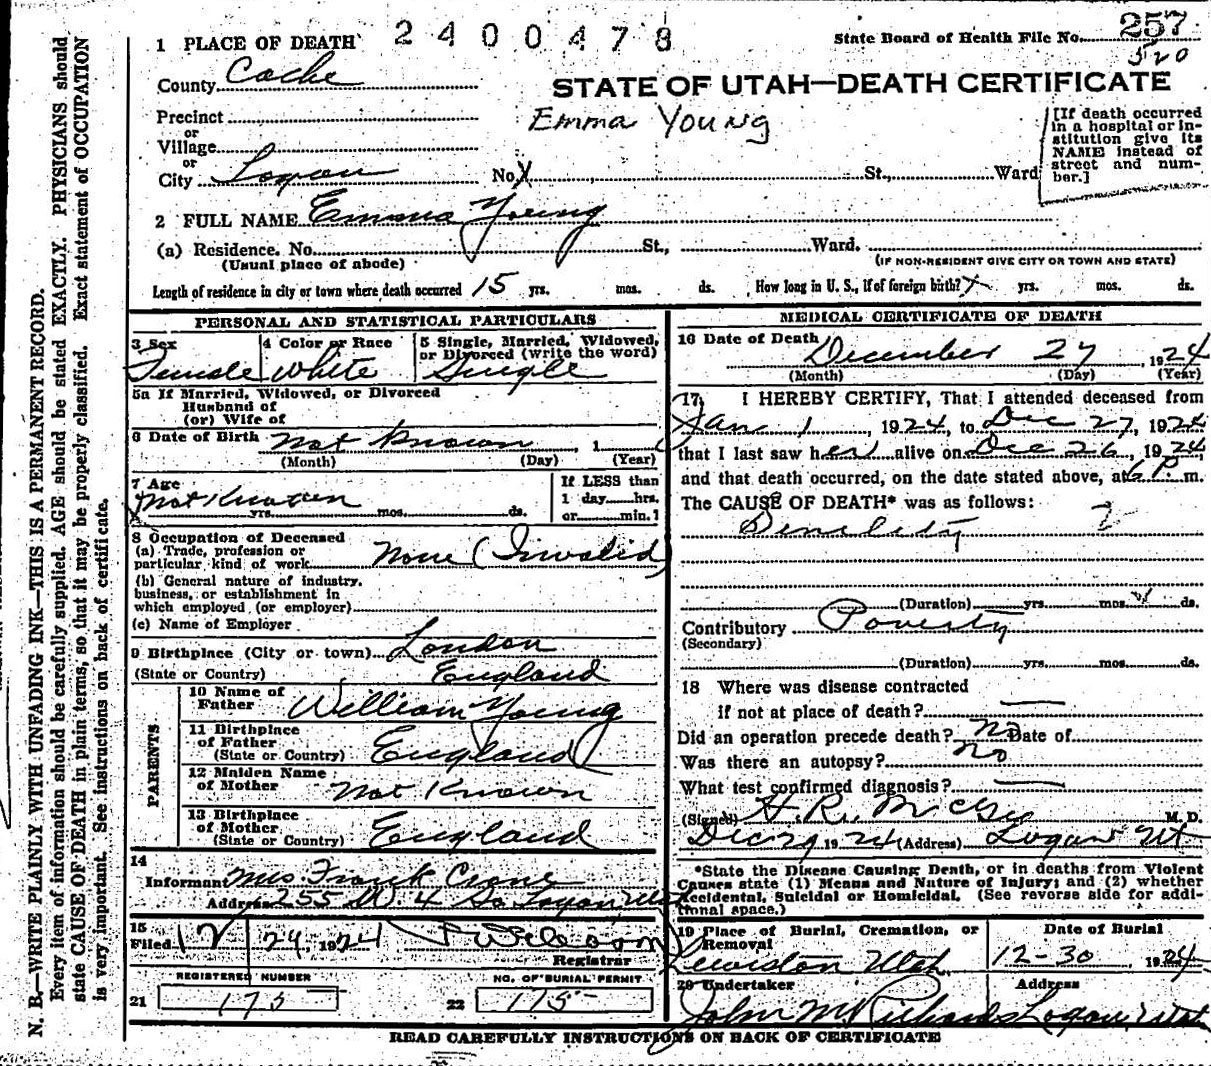 2400478
State Board of Health File No. 257
520
1 PLACE OF DEATH
County Cache
STATE OF UTAH—DEATH CERTIFICATE
Emma Young
Precinct
or
Village
or
City Logan No. St., Ward
[If death occurred
in a hospital or in-
stitution give its
NAME instead of
street and num-
ber.]
2 FULL NAME Emma Young
(a) Residence. No. St., Ward.
(Usual place of abode) (IF NON-RESIDENT GIVE CITY OR TOWN AND STATE)
Length of residence in city or town where death occurred 15 yrs. mos. ds. How long in U. S., if of foreign birth? yrs. mos. ds.
PERSONAL AND STATISTICAL PARTICULARS
3 Sex
Female
4 Color or Race
White
5 Single, Married, Widowed,
or Divorced (write the word)
Single
5a If Married, Widowed, or Divorced
Husband of
(or) Wife of
6 Date of Birth Not Known, 1
(Month) (Day) (Year)
7 Age
Not Known
yrs. mos. ds.
If LESS than
1 day hrs.
or min.]
8 Occupation of Deceased
(a) Trade, profession or
particular kind of work None (Invalid)
(b) General nature of industry,
business, or establishment in
which employed (or employer)
(c) Name of Employer
9 Birthplace (City or town) London
(State or Country) England
PARENTS
10 Name of
Father William Young
11 Birthplace
of Father
(State or Country) England
12 Maiden Name
of Mother Not Known
13 Birthplace
of Mother
(State or Country) England
14
Informant Mrs. Frank Crone
Address 255 W. 4 So Logan, Utah
15
Filed 12 24 1924
Registrar
REGISTERED NUMBER
21 175
NO. OF BURIAL PERMIT
22 175
MEDICAL CERTIFICATE OF DEATH
16 Date of Death December 27, 1924
(Month) (Day) (Year)
17 I HEREBY CERTIFY, That I attended deceased from
Jan 1, 1924, to Dec 27, 1924
that I last saw her alive on Dec 26, 1924,
and that death occurred, on the date stated above, at 6 P. m.
The CAUSE OF DEATH* was as follows:
?
(Duration) yrs. mos. ds.
Contributory Poverty
(Secondary)
(Duration) yrs. mos. ds.
18 Where was disease contracted
if not at place of death?
Did an operation precede death? No Date of
Was there an autopsy? No
What test confirmed diagnosis?
(Signed) H. R. McGee M. D.
Dec 29 1924 (Address) Logan Ut
*State the Disease Causing Death, or in deaths from Violent
Causes state (1) Means and Nature of Injury; and (2) whether
Accidental, Suicidal or Homicidal. (See reverse side for addi-
tional space.)
19 Place of Burial, Cremation, or
Removal
Lewiston Utah
Date of Burial
12-30, 1924
20 Undertaker Address
John M Richards Logan, Utah
READ CAREFULLY INSTRUCTIONS ON BACK OF CERTIFICATE
N. B.—WRITE PLAINLY WITH UNFADING INK—THIS IS A PERMANENT RECORD.
Every item of information should be carefully supplied. AGE should be stated EXACTLY. PHYSICIANS should
state CAUSE OF DEATH in plain terms, so that it may be properly classified. Exact statement of OCCUPATION
is very important. See instructions on back of certificate.